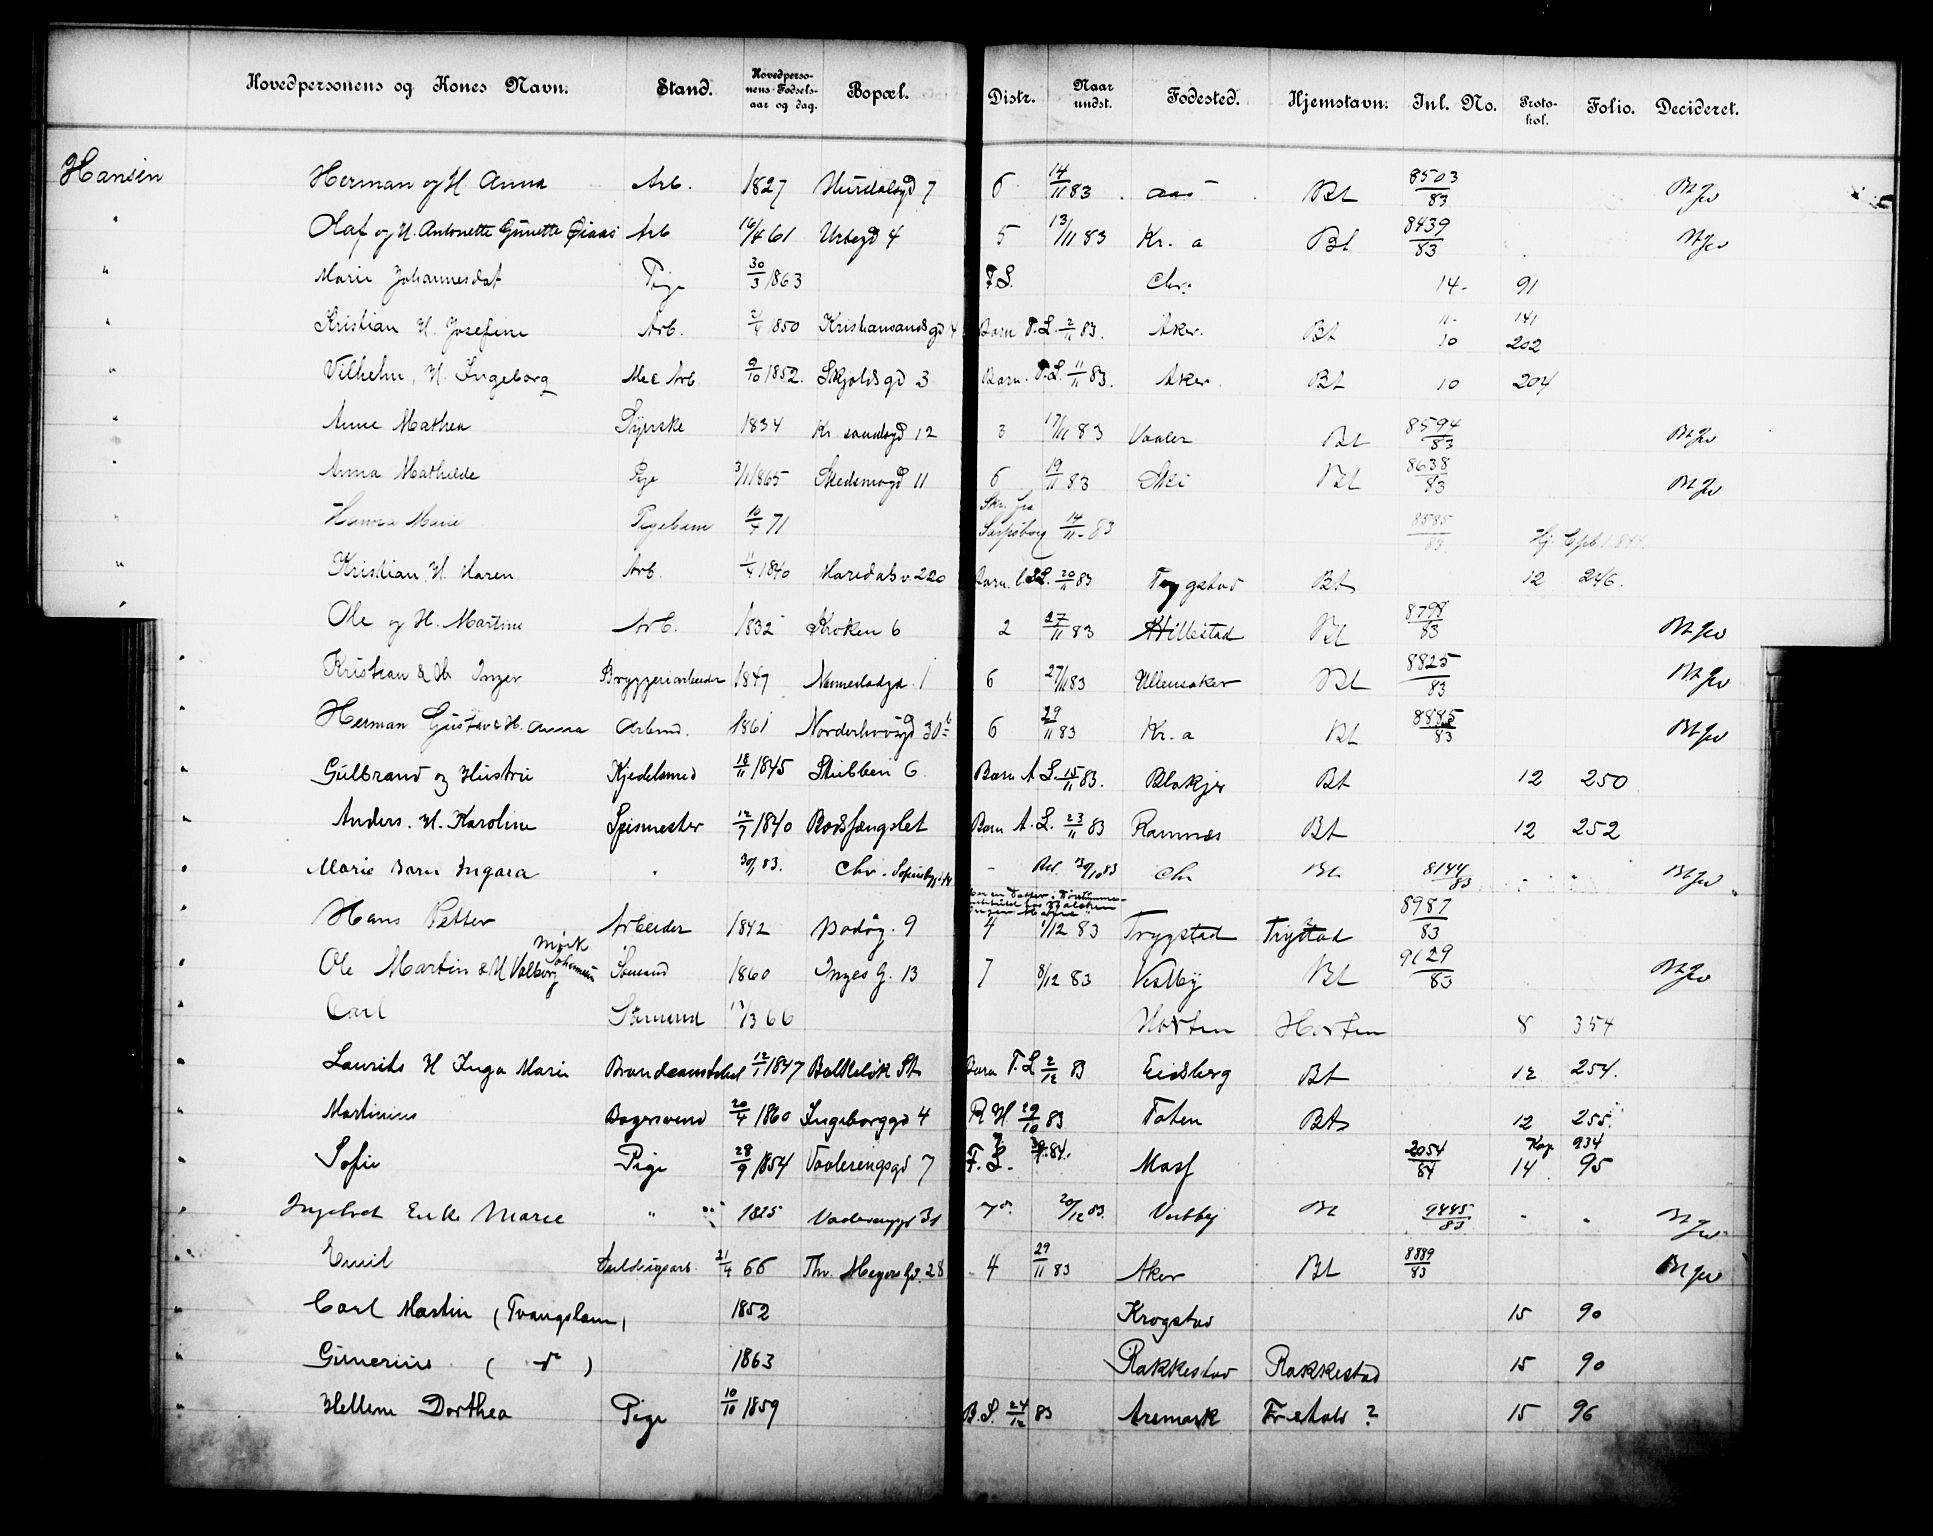 Hovedpersonens og Kones Navn. Stand. Hovedperso-nens Fødsels-aar og dag. Bopæl. Distr. Naar undst. Fødested. Hjemstavn. Inl. No. Proto-kol. Folio. Decideret.
Hansen Herman og H. Anna Arb. 1827 Hurdalsgd 7 6 14/11 83 Aas Bt 8503/83
" Olaf og H. Antonette Gunette Arb 16/4 61 Urtegd 4 5 13/11 83 Kr. a Bt 8439/83
" Marie Johannesdat Pige 30/3 1863 F.S. Chr. 14 - 91
" Kristian H. Josefine Arb. 2/4 1850 Kristiansandsgd 4 Barn F.L. 2/11 83. Aker. Bt 11 - 141
10 202
" Vilhelm, H. Ingeborg Mek Arb. 9/10 1852. Skjoldsgd 3 Barn. F.L. 11/11 83. Aker. Bt 10 204
" Anne Mathea Syerske 1834 Kr. sandsgd 12 3 17/11 83 Vaaler Bt 8594/83
" Anna Mathilde Pige 3/1 1865 Skedsmogd 11 6 19/11 83 Ski Bt 8638/83
" Hanna Marie Pigebarn 10/4 71 Skr. fra Sarpsborg 14/11 - 83 8585/83
" Kristian H. Maren Arb. 11/4 1840 Maridalsv. 220 Barn. 20/11 83 Trygstad Bt 12 246.
" Ole og H. Martine Arb. 1832 Kroken 6 2 27/11 83 Hillestad Bt 8798/83
" Kristian & H. Inger Bryggeriarbeider 1847 Nannestadgd. 1 6 27/11 83 Ullensaker Bt 8825/83
" Herman Gustav & H. Anna Arbmd. 1861 Norderhovgd 30 b 6 29/11 83 Kr. a Bt 8885/83
" Gulbrand og Hustru Kjedelsmed 18/11 1845 Stubben 6 Barn A.L. 15/11 83. Blakjer Bt 12 250
" Anders. H. Karoline Spismester 12/7 1840 Bodsfængslet Barn A.L. 23/11 83 Ramnes Bt 12 252
" Marie Barn Ingara " 30/1 83. Chr. - 30/10 83 Chr Bt 8144/83 " "
" Hans Petter Arbeider 1842 Bodøg. 9 4 1/12 83 Trygstad Trygstad 8987/83
" Ole Martin & H Valborg Mørk Stenmd 1860 Inges G. 13 7 8/12 83 Vestby Bt 9129/83
" Carl Stenmd 17/3 66 Horten Horten 8 354
" Laurits H Inga Marie Brandconstabel 12/1 1847 Bakkeløk St Barn F.L. 2/12 83 Eidsberg Bt 12 254.
" Martinius Bagersvend 20/4 1860 Ingeborggd 4 R.H 29/10 83 Toten Bt 12 255.
" Sofie Pige 28/9 1854 Vaalerengsgd 7 F.L. 84. Moss 2054/84 Kop 934
14 95
" Ingebret Enke Marie " 1825 Vaalerenggd 31 7 20/12 83. Vestby Bt 9445/83 " "
" Emil 21/4 66 Thv. Meyers Gd. 28 4 29/11 83 Aker Bt 8889/83
" Carl Martin (Tvangslem) 1852 Krogstad 15 90
" Gunerius ( do ) 1863 Rakkestad Rakkestad 15 90
" Hellene Dorthea Pige 10/10 1859 B.S. 24/12 83 Aremark Fr-stad ? 15 96